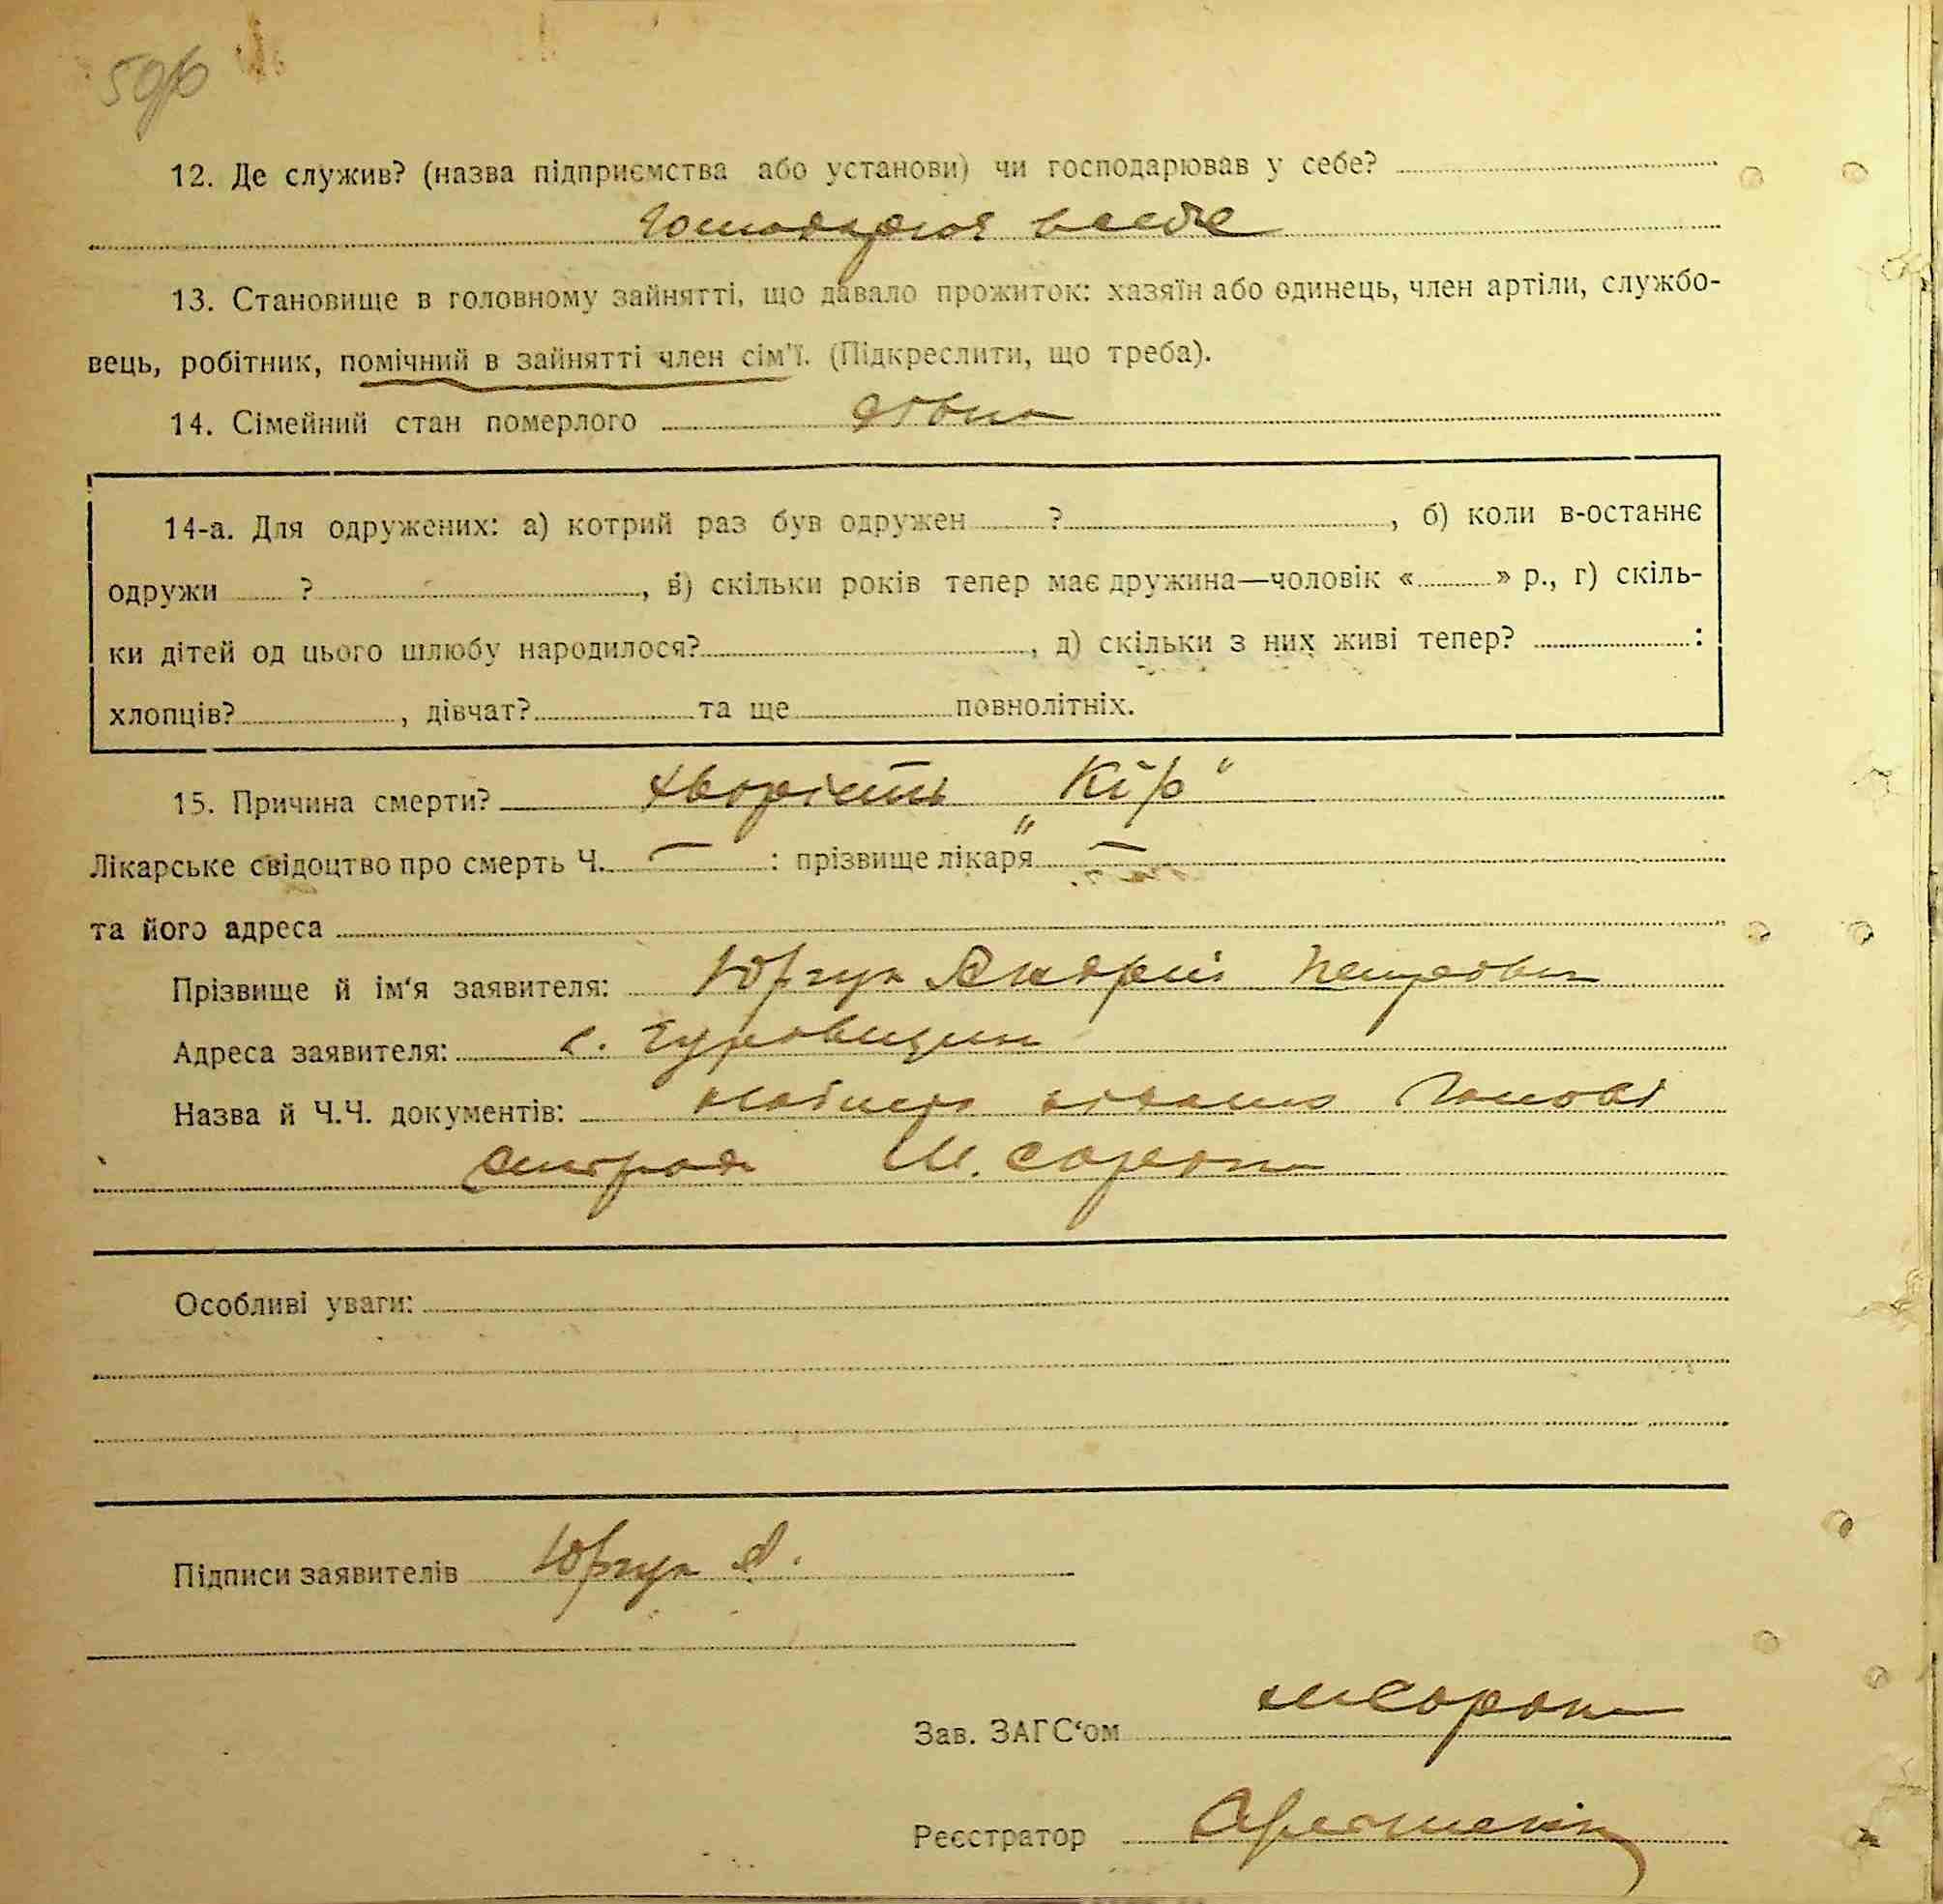 12. Де служив? (назва підприємства або установи) чи господарював у себе?
13. Становище в головному зайнятті, що давало прожиток: хазяїн або одинець, член артіли, службо-
вець, робітник, помічний в зайнятті член сім'ї. (Підкреслити, що треба).
14. Сімейний стан померлого
14-а. Для одружених: а) котрий раз був одружен ?, б) коли в-останнє
одружи ?, в) скільки років тепер має дружина—чоловік « » р., г) скіль-
ки дітей од цього шлюбу народилося?, д) скільки з них живі тепер? :
хлопців?, дівчат? та ще повнолітніх.
15. Причина смерти? хворість „Кір“
Лікарське свідоцтво про смерть Ч. — : прізвище лікаря —
та його адреса
Прізвище й ім'я заявителя: Юрчук Андрій Петрович
Адреса заявителя: с.
Назва й Ч.Ч. документів:
М. Сорока
Особливі уваги:
Підписи заявителів Юрчук А.
Зав. ЗАГС'ом МСорока
Реєстратор